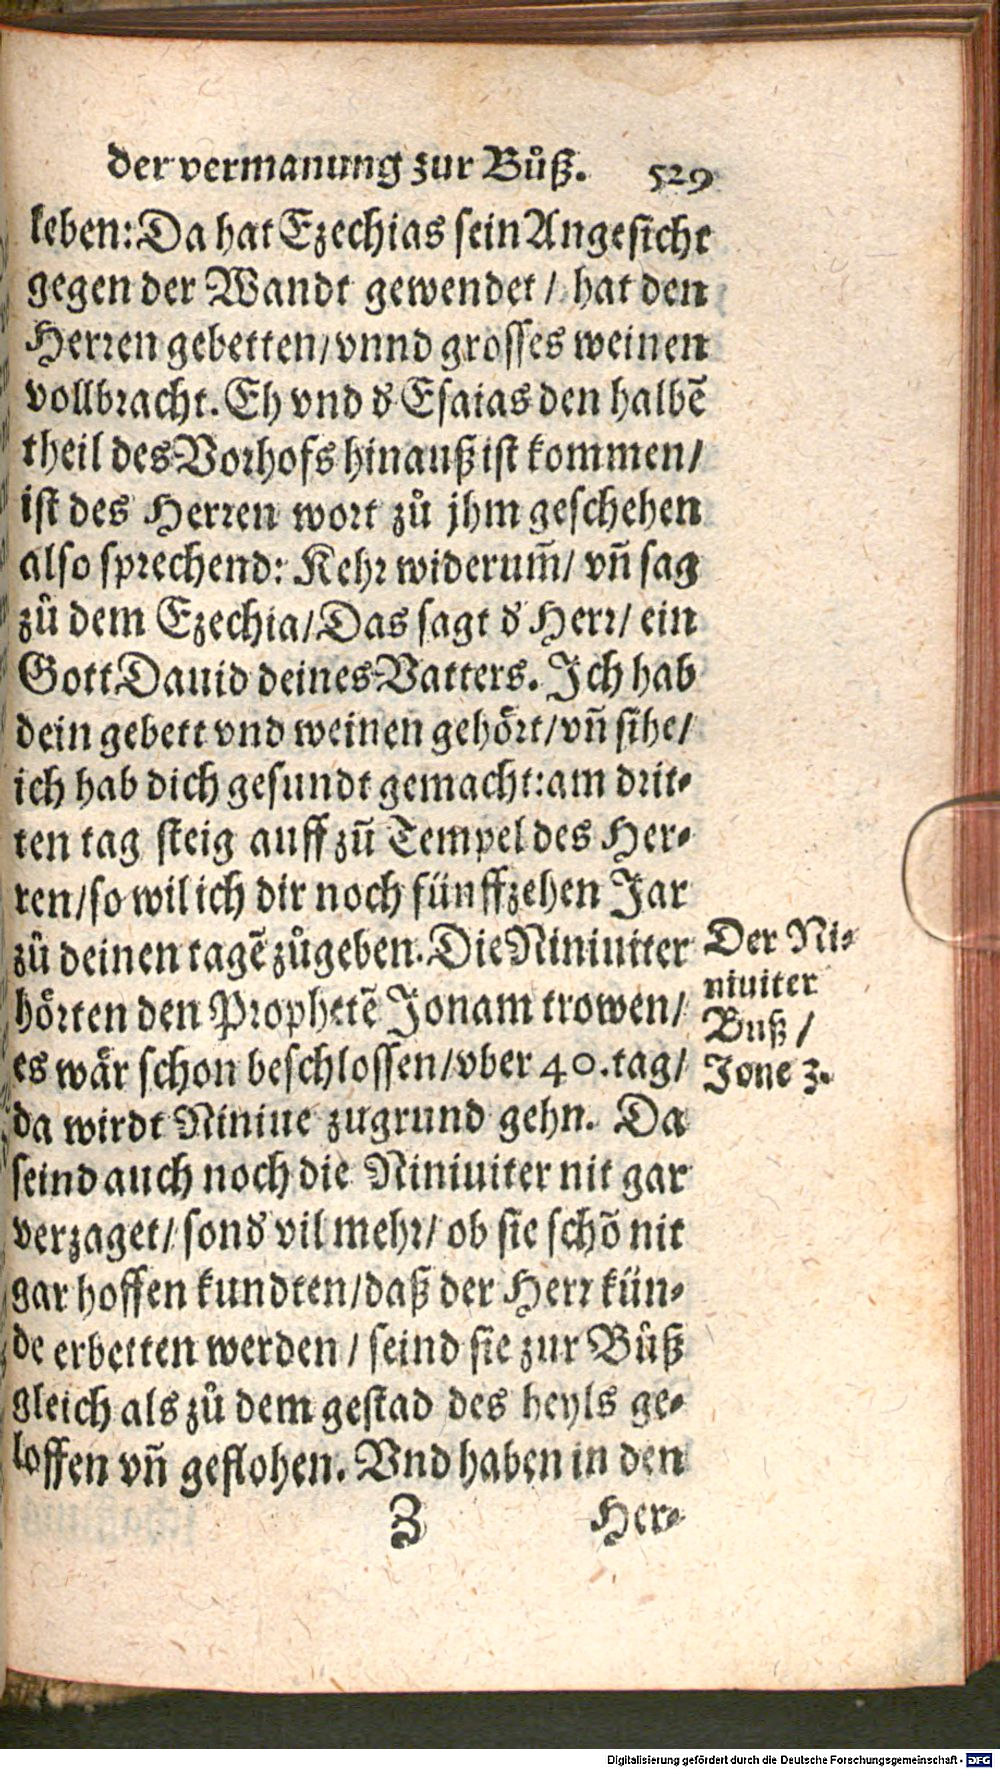 der vermanung zur Bůß. 529
leben: Da hat Ezechias sein Angesicht
gegen der Wandt gewendet / hat den
Herren gebetten / vnnd grosses weinen
vollbracht. Eh vnd d' Esaias den halbē
theil des Vorhofs hinauß ist kommen /
ist des Herren wort zů jhm geschehen
also sprechend: Kehr widerum̃ / vñ sag
zů dem Ezechia / Das sagt d' Herr / ein
Gott Dauid deines Vatters. Ich hab
dein gebett vnd weinen gehört / vñ sihe /
ich hab dich gesundt gemacht: am drit⸗
ten tag steig auff zũ Tempel des Her⸗
ren / so wil ich dir noch fünffzehen Jar
zů deinen tagē zůgeben. Die Niniuiter
hörten den Prophetē Jonam trowen /
es wär schon beschlossen / vber 40. tag /
da wirdt Niniue zugrund gehn. Da
seind auch noch die Niniuiter nit gar
verzaget / sond' vil mehr / ob sie schõ nit
gar hoffen kundten / daß der Herr kün⸗
de erbetten werden / seind sie zur Bůß
gleich als zů dem gestad des heyls ge⸗
loffen vñ geflohen. Vnd haben in den
Z Her⸗
Der Ni⸗
niuiter
Buß /
Jone 3.
Digitalisierung gefördert durch die Deutsche Forschungsgemeinschaft - DFG